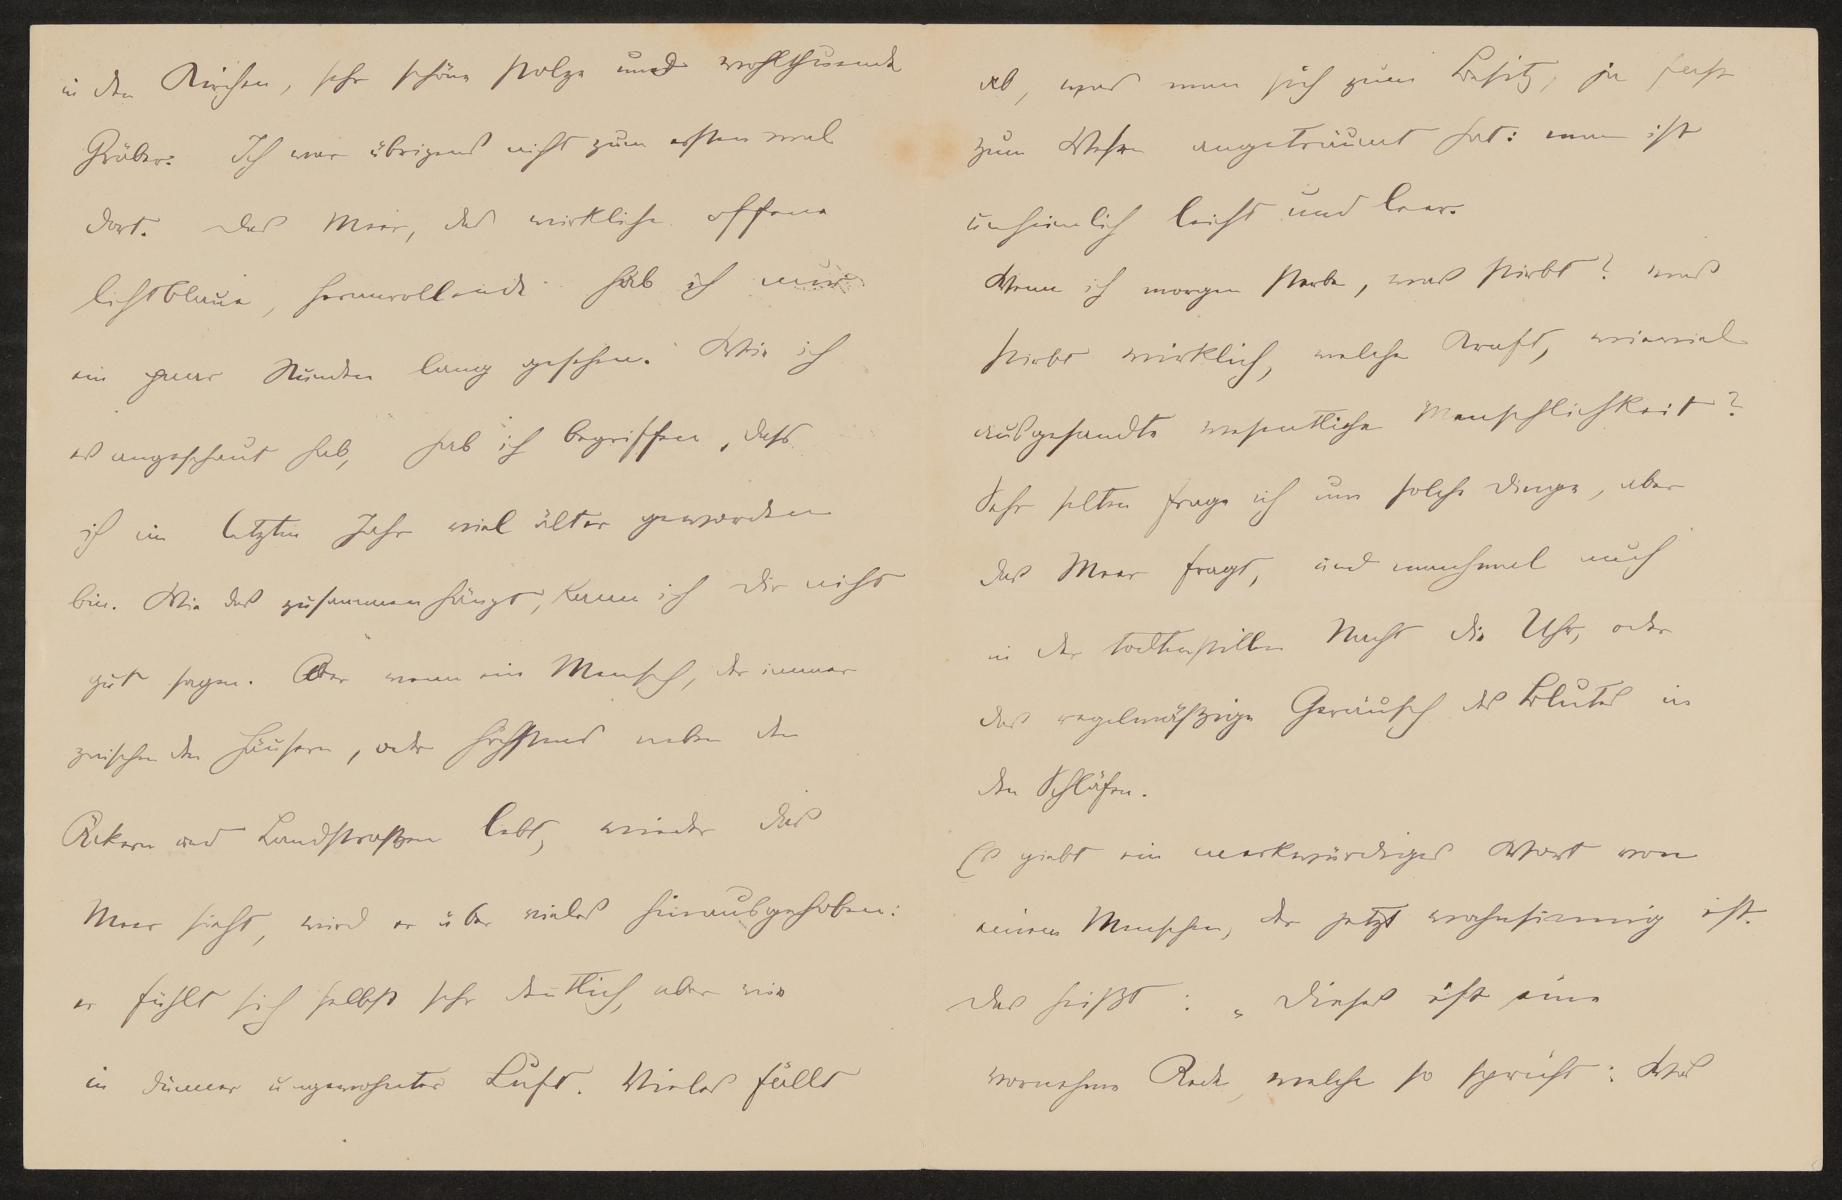 in den Kirchen, sehr schöne stolze und wohlthuende
Gräber. Ich war übrigens nicht zum ersten mal
dort. Das Meer, das wirkliche offene
lichtblaue, heranrollende hab ich nur
ein paar Stunden lang gesehen. Wie ich
es angeschaut hab, hab ich begriffen, dass
ich im letzten Jahr viel älter geworden
bin. Wie das zusammenhängt, kann ich Dir nicht
gut sagen. Aber wenn ein Mensch, der immer
zwischen den Häusern, oder höchstens neben den
Äckern und Landstraßen lebt, wieder das
Meer sieht, wird er über vieles hinausgehoben:
er fühlt sich selbst sehr deutlich, aber wie
in dünner ungewohnter Luft. Vieles fällt
ab, was man sich zum Besitz, ja fast
zum Wesen angeträumt hat: man ist
unheimlich leicht und leer.
Wenn ich morgen sterbe, was stirbt? was
stirbt wirklich, welche Kraft, wieviel
ausgesandte wesentliche Menschlichkeit?
Sehr selten frage ich um solche Dinge, aber
das Meer fragt, und manchmal auch
in der todtenstillen Nacht die Uhr, oder
das regelmäßige Geräusch des Blutes in
den Schläfen.
Es giebt ein merkwürdiges Wort von
einem Menschen, der jetzt wahnsinnig ist.
Das heißt: „Dieses ist eine
vornehme Rede, welche so spricht: Was